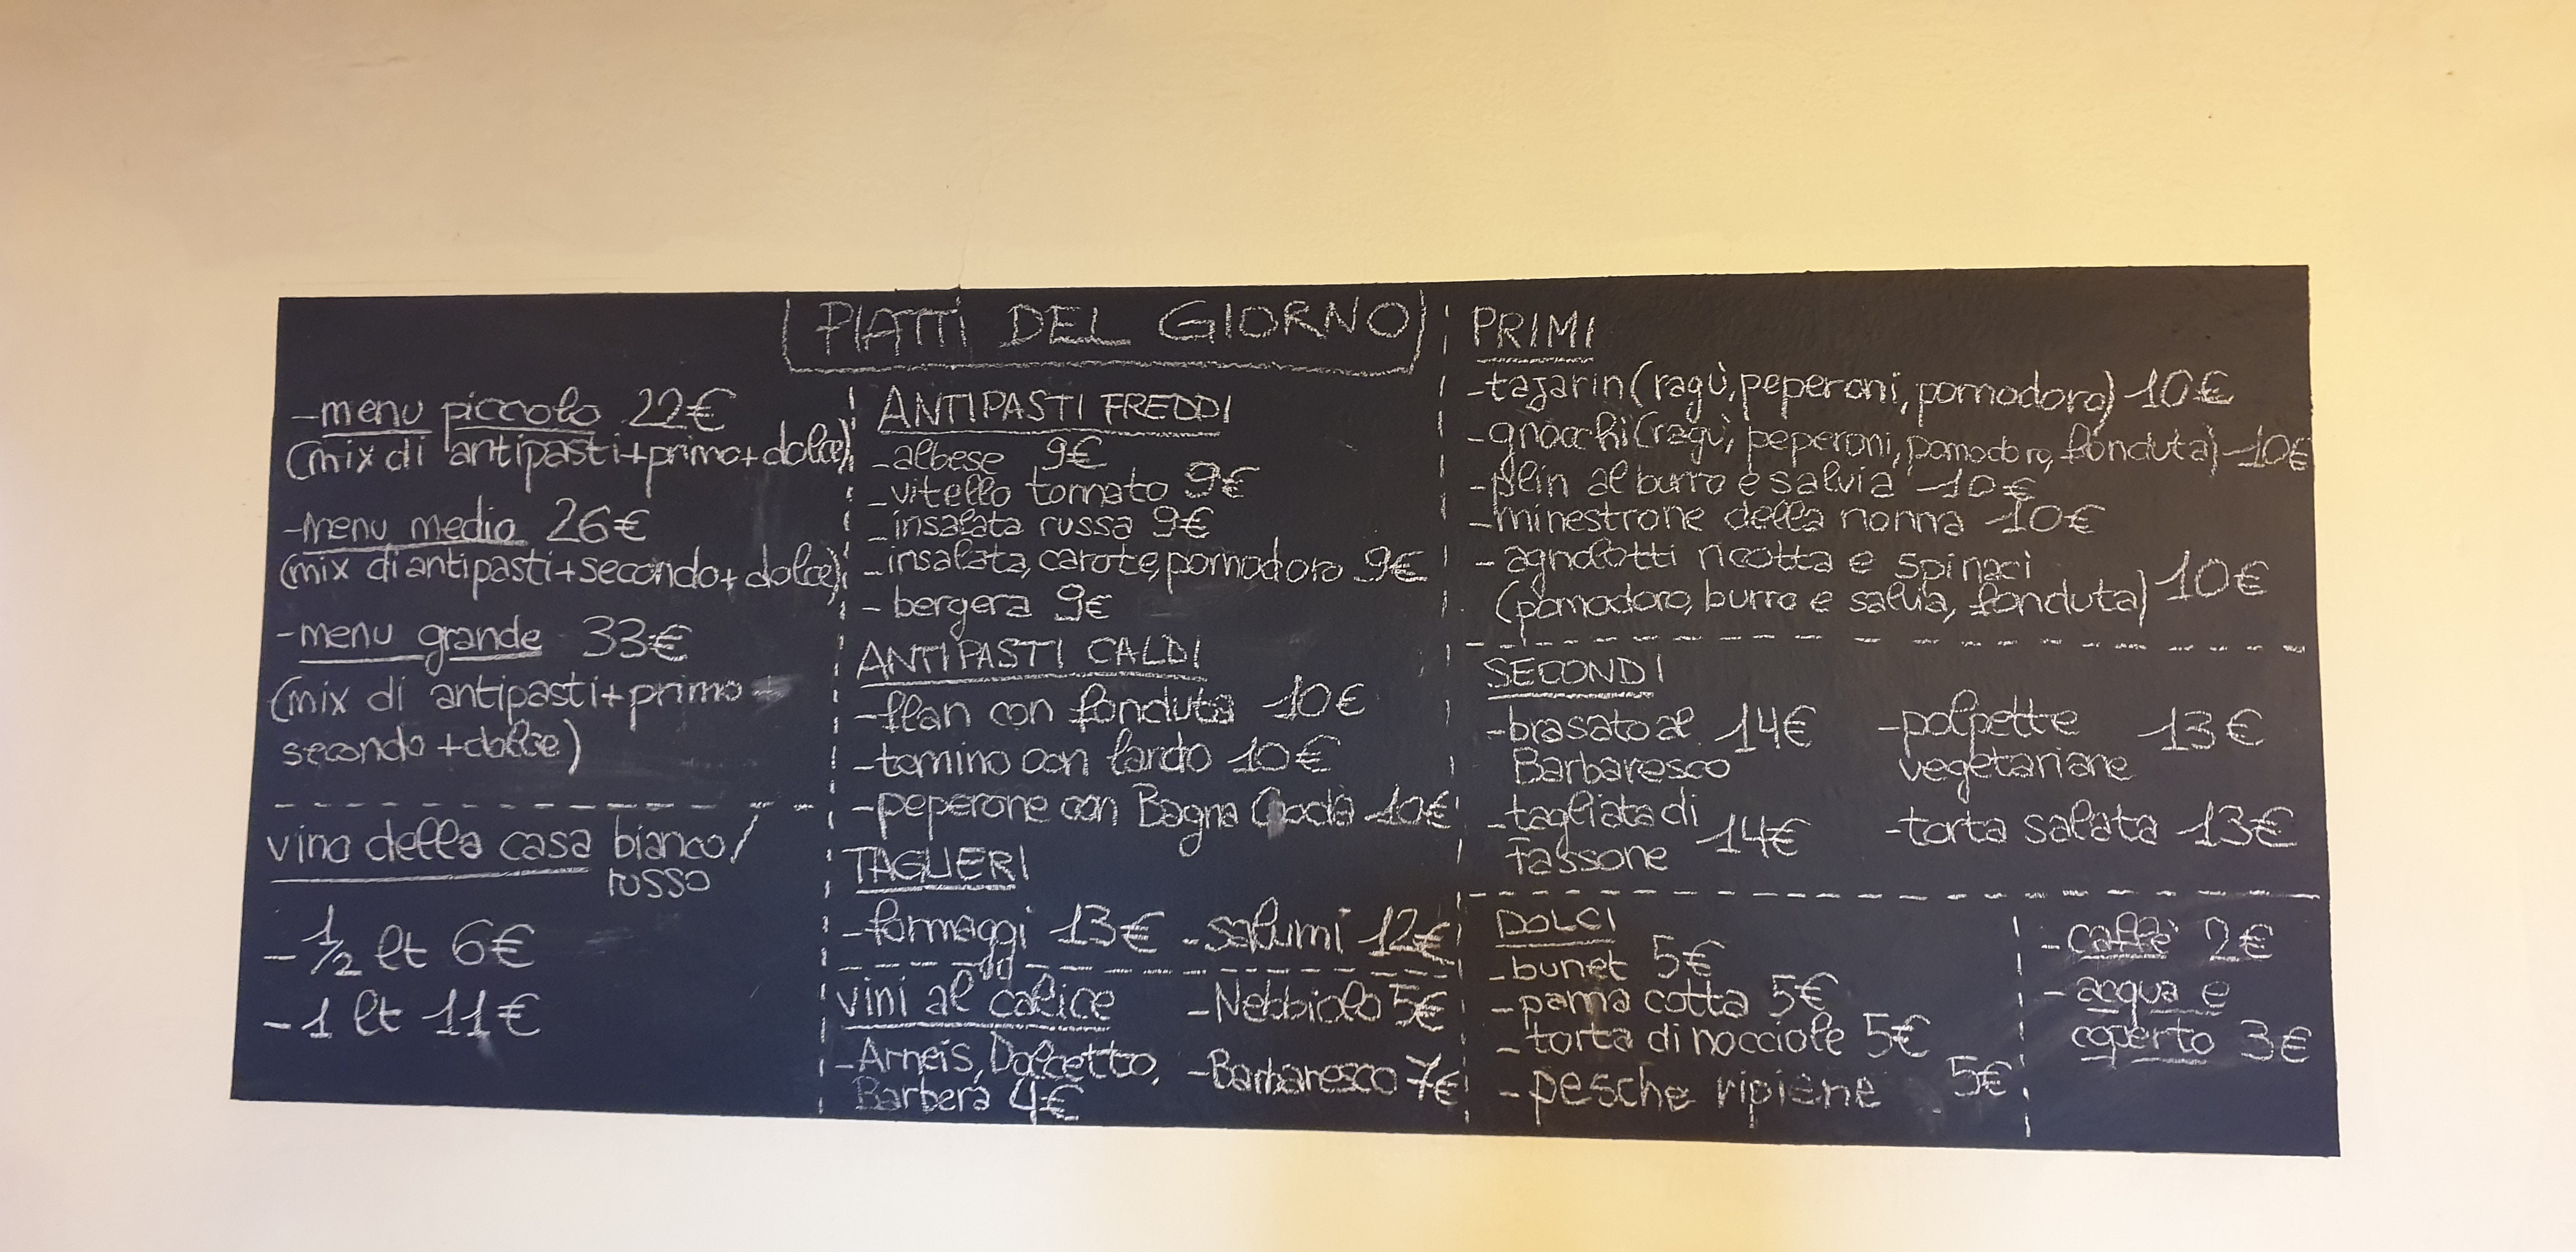 PIATTI DEL GIORNO
-menu piccolo 22€
(mix di antipasti+primo+dolce)
-menu medio 26€
(mix di antipasti+secondo+dolce)
-menu grande 33€
(mix di antipasti+primo+
secondo+dolce)
vino della casa bianco/
rosso
-1/2 lt 6€
-1 lt 11€
ANTIPASTI FREDDI
-albese 9€
-vitello tonnato 9€
-insalata russa 9€
-insalata, carote, pomodoro 9€
-bergera 9€
ANTIPASTI CALDI
-flan con fonduta 10€
-tomino con lardo 10€
-peperone con Bagna Caoda 10€
TAGLIERI
-formaggi 13€ -salumi 12€
vini al calice -Nebbiolo 5€
-Arneis, Dolcetto, -Barbaresco 7€
Barbera 4€
PRIMI
-tajarin (ragù, peperoni, pomodoro) 10€
-gnocchi (ragù, peperoni, pomodoro, fonduta) 10€
-plin al burro e salvia 10€
-minestrone della nonna 10€
-agnolotti ricotta e spinaci
(pomodoro, burro e salvia, fonduta) 10€
SECONDI
-brasato al 14€
Barbaresco
-tagliata di
Fassone 14€
-polpette 13€
vegetariane
-torta salata 13€
DOLCI
-bunet 5€
-panna cotta 5€
-torta di nocciole 5€
-pesche ripiene 5€
-caffè 2€
-acqua e
coperto 3€